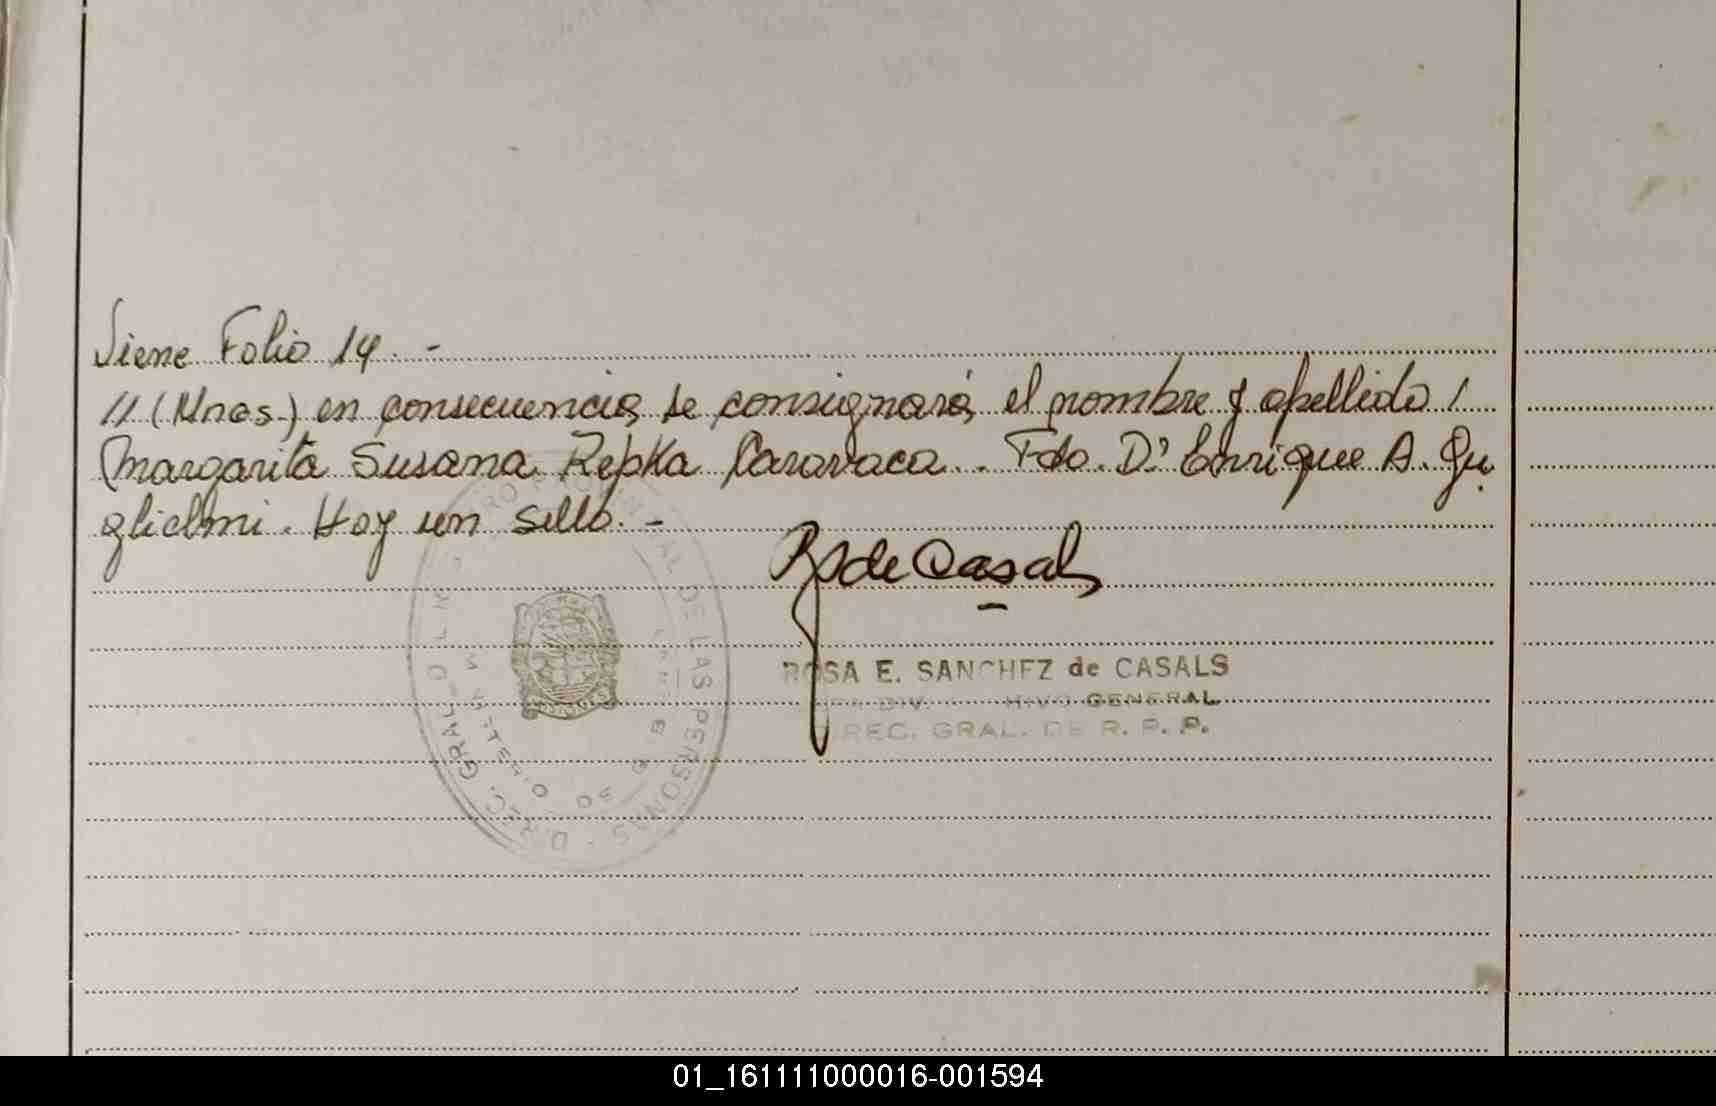 Viene Folio 14. -
// (Unos.) en consecuencia, se consignará, el nombre y apellido /
Margarita Susana Repka Caravaca. Fdo. Dr. Enrique A. Gu
glielmi. Hay un sello. -
RS de Casals
ROSA E. SANCHEZ de CASALS
DIV. HIVO GENERAL
REC. GRAL. DE R. P. P.
AL DE LAS PERSONAS - DIREC. GRAL.
01_161111000016-001594